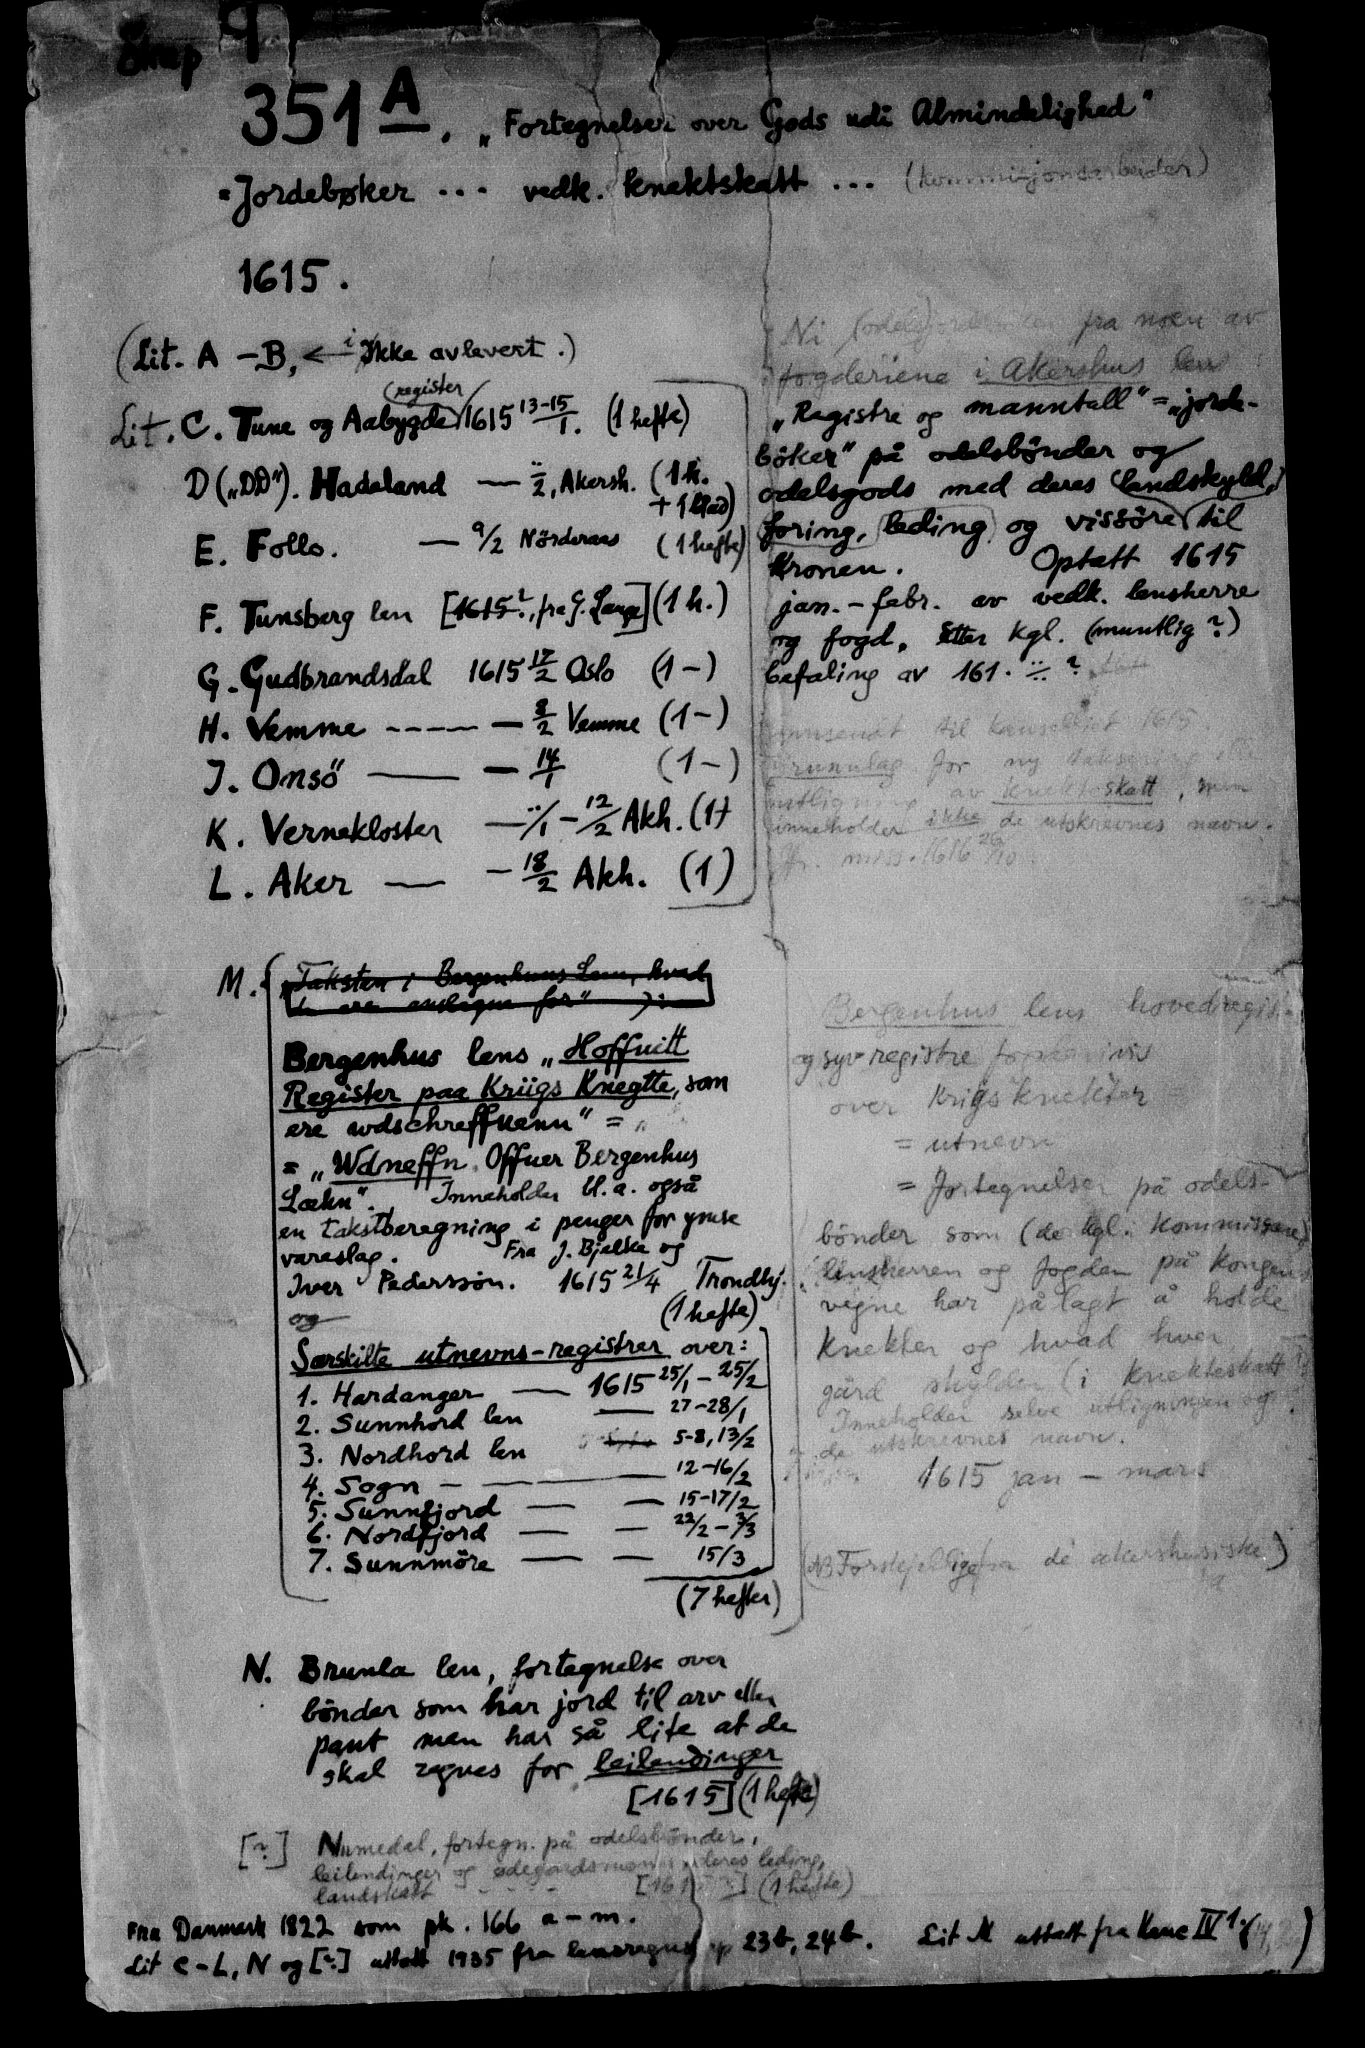 351 A. „Fortegnelser over Gods udi Almindelighed"
= Jordebøker ... vedk. knektskatt ... (kommisjonsarbeider)
1615.
(Lit. A - B, ← ikke avlevert.)
Lit. C. Tune og Aabygde (register) 1615 13-15/1. (1 hefte)
D („DD"). Hadeland — ../2, Akersh. (1 h. + 1 blad)
E. Follo. — 9/2 Nördernes (1 hefte)
F. Tunsberg len [1615?, fra G. Lange] (1 h.)
G. Gudbrandsdal 1615 17/2 Oslo (1 -)
H. Vemme ----- — 8/2 Vemme (1 -)
J. Onsö — — 14/1 (1 -)
K. Vernekloster — ../1 - 12/2 Akh. (1)
L. Aker — - 18/2 Akh. (1)
Ni (odels)jordebøker fra noen av
fogderiene i Akershus len
„Registre og manntall" = „jorde-
böker" på odelsbönder og
odelsgods med deres landskyld,
foring, leding og visöre til
Kronen. Optatt 1615
jan. - febr. av vedk. lensherre
og fogd, etter kgl. (muntlig?)
befaling av 161. ?
innsendt til kanselliet 1615.
Grunnlag for ny taksering
utligning av knektskatt, men
inneholder ikke de utskrevnes navn.
Jfr. miss. 1616 26/10
M. „Taksten i Bergenhus Len, hvad
de ere anslagne for"):
Bergenhus lens „Hoffuitt
Register paa Kriigs Knegtte, som
ere wdschreffuenn" =
= „Wdneffn Offuer Bergenhus
Læhn". Inneholder bl. a. også
en takstberegning i penger for ymse
vareslag. Fra J. Bjelke og
Iver Pederssøn. 1615 21/4 Trondhj.
(1 hefte)
og
Særskilte utnevns-registrer over:
1. Hardanger — 1615 25/1 - 25/2
2. Sunnhord len — 27-28/1
3. Nordhord len 5-8, 13/2
4. Sogn — — 12-16/2
5. Sunnfjord — — 15-17/2
6. Nordfjord — — 22/2 - 3/3
7. Sunnmöre — — 15/3
(7 hefter)
Bergenhus lens hovedregister
og syv registre fogderivis
over Krigsknekter
= utnevn
= Fortegnelser på odels-
bönder som (de kgl. kommissærer)
lensherren og fogden på kongens
vegne har pålagt å holde
knekter og hvad hver
gård skylder (i knekteskatt)
Inneholder selve utligningen og
de utskrevnes navn.
1615 jan - mars
(NB Forskjellige fra de akershusiske)
N. Brunla len, fortegnelse over
bönder som har jord til arv eller
pant men har så lite at de
skal regnes for leilendinger
[1615] (1 hefte)
[?] Numedal, fortegn. på odelsbönder,
leilendinger og ödegårdsmenn, deres leding,
landskatt - - - - [161] (1 hefte)
Fra Danmark 1822 som pk. 166 a - m.
Lit C - L, N og [?] uttatt 1935 fra lensregnsk. 23b, 24b. Lit M uttatt fra Kanc IV 1.